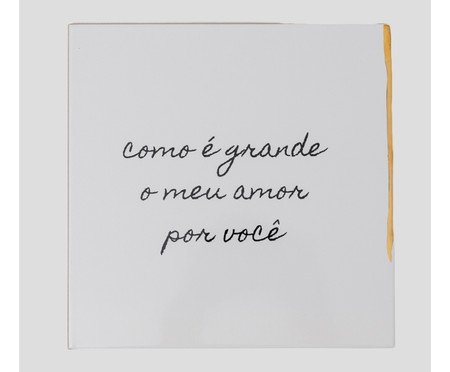 como é grande
o meu amor
por você